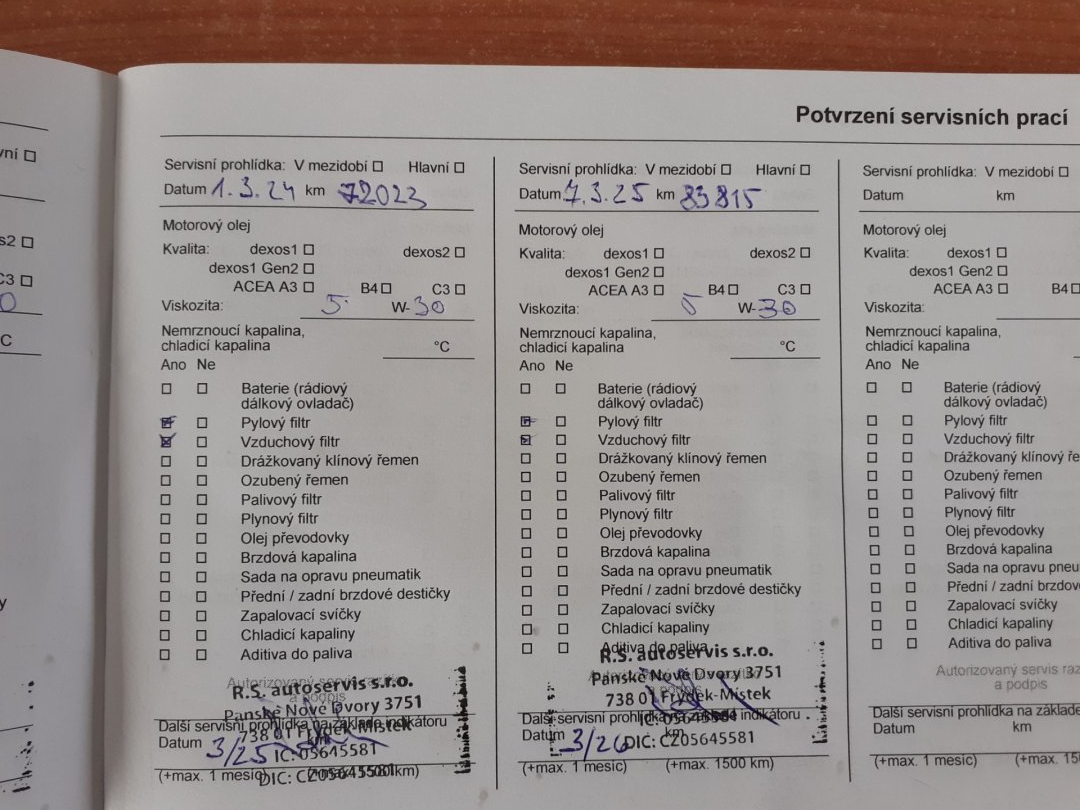 Potvrzení servisních prací
vní
s2
C3
C
y
Servisní prohlídka: V mezidobí Hlavní
Datum 1.3.24 km 72023
Motorový olej
Kvalita: dexos1 dexos2
dexos1 Gen2
ACEA A3 B4 C3
Viskozita: 5 W-30
Nemrznoucí kapalina,
chladicí kapalina °C
Ano Ne
Baterie (rádiový
dálkový ovladač)
Pylový filtr
Vzduchový filtr
Drážkovaný klínový řemen
Ozubený řemen
Palivový filtr
Plynový filtr
Olej převodovky
Brzdová kapalina
Sada na opravu pneumatik
Přední / zadní brzdové destičky
Zapalovací svíčky
Chladicí kapaliny
Aditiva do paliva
R.S. autoservis s.r.o.
Panské Nové Dvory 3751
738 01 Frýdek-Místek
IČ: 05645581
DIČ: CZ05645581
Další servisní prohlídka na základě indikátoru
Datum 3/25 km
(+max. 1 měsíc)
Servisní prohlídka: V mezidobí Hlavní
Datum 7.3.25 km 83815
Motorový olej
Kvalita: dexos1 dexos2
dexos1 Gen2
ACEA A3 B4 C3
Viskozita: 5 W-30
Nemrznoucí kapalina,
chladicí kapalina °C
Ano Ne
Baterie (rádiový
dálkový ovladač)
Pylový filtr
Vzduchový filtr
Drážkovaný klínový řemen
Ozubený řemen
Palivový filtr
Plynový filtr
Olej převodovky
Brzdová kapalina
Sada na opravu pneumatik
Přední / zadní brzdové destičky
Zapalovací svíčky
Chladicí kapaliny
Aditiva do paliva
R.S. autoservis s.r.o.
Panské Nové Dvory 3751
738 01 Frýdek-Místek
IČ: 05645581
DIČ: CZ05645581
Další servisní prohlídka na základě indikátoru
Datum 3/26
(+max. 1 měsíc) (+max. 1500 km)
Servisní prohlídka: V mezidobí
Datum km
Motorový olej
Kvalita: dexos1
dexos1 Gen2
ACEA A3 B4
Viskozita:
Nemrznoucí kapalina,
chladicí kapalina
Ano Ne
Baterie (rádiový
dálkový ovladač)
Pylový filtr
Vzduchový filtr
Drážkovaný klínovýře
Ozubený řemen
Palivový filtr
Plynový filtr
Olej převodovky
Brzdová kapalina
Sada na opravu pneu
Přední / zadní brzdo
Zapalovací svíčky
Chladicí kapaliny
Aditiva do paliva
Autorizovaný servis raz
a podpis
Další servisní prohlídka na základě
Datum km
(+max. 1 měsíc) (+max. 15